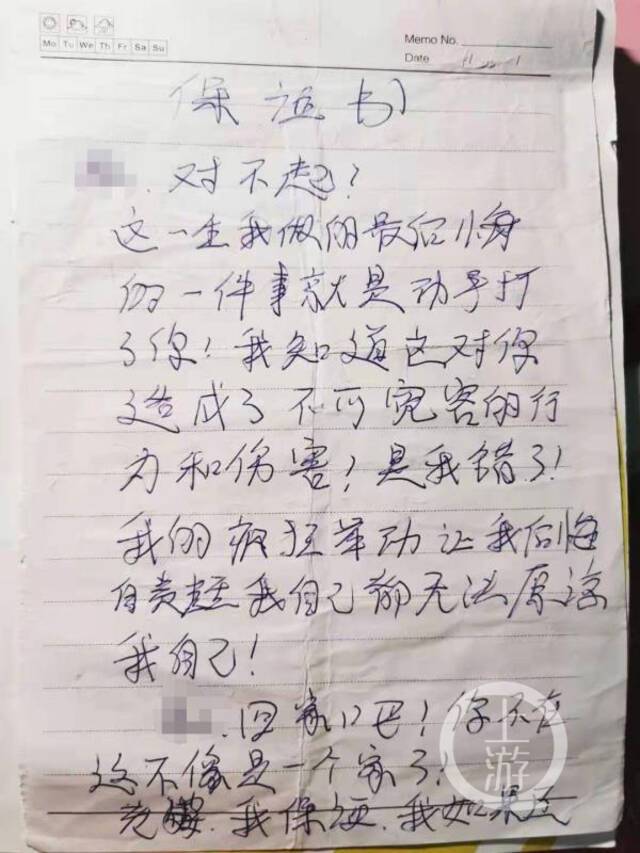 Mo Tu We Th Fr Sa Su
Memo No.
Date
保证书
对不起?
这一生我做的最后悔
的一件事就是动手打
了你!我知道这对你
造成了不可宽容的行
为和伤害!是我错了!
我的疯狂举动让我后悔
自责 我自己都无法原谅
我自己!
回家吧!你不在
这不像是一个家了!
我保证,我如果
上游